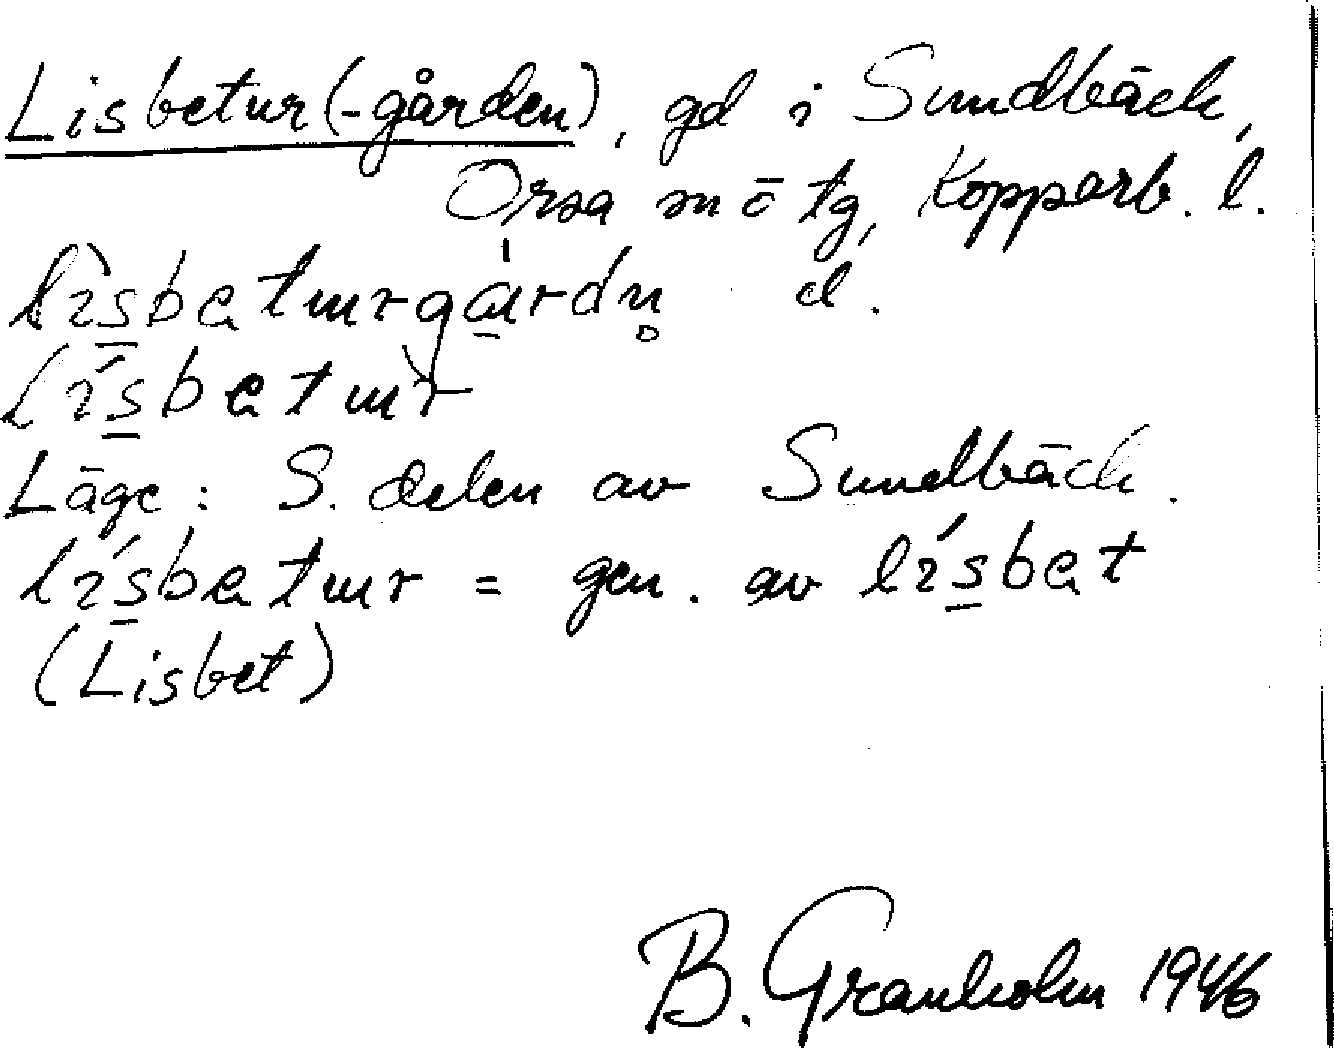 Lisbetur(-gården), gd i Sundbäck,
Orsa sn ō tg, Kopparb. l.
lìsbetɯrgárdn̥ d.
Lísbetɯr
Läge: S. delen av Sundbäck.
lísbetɯr = gen. av lísbet
(Lisbet)
B. Granholm 1946